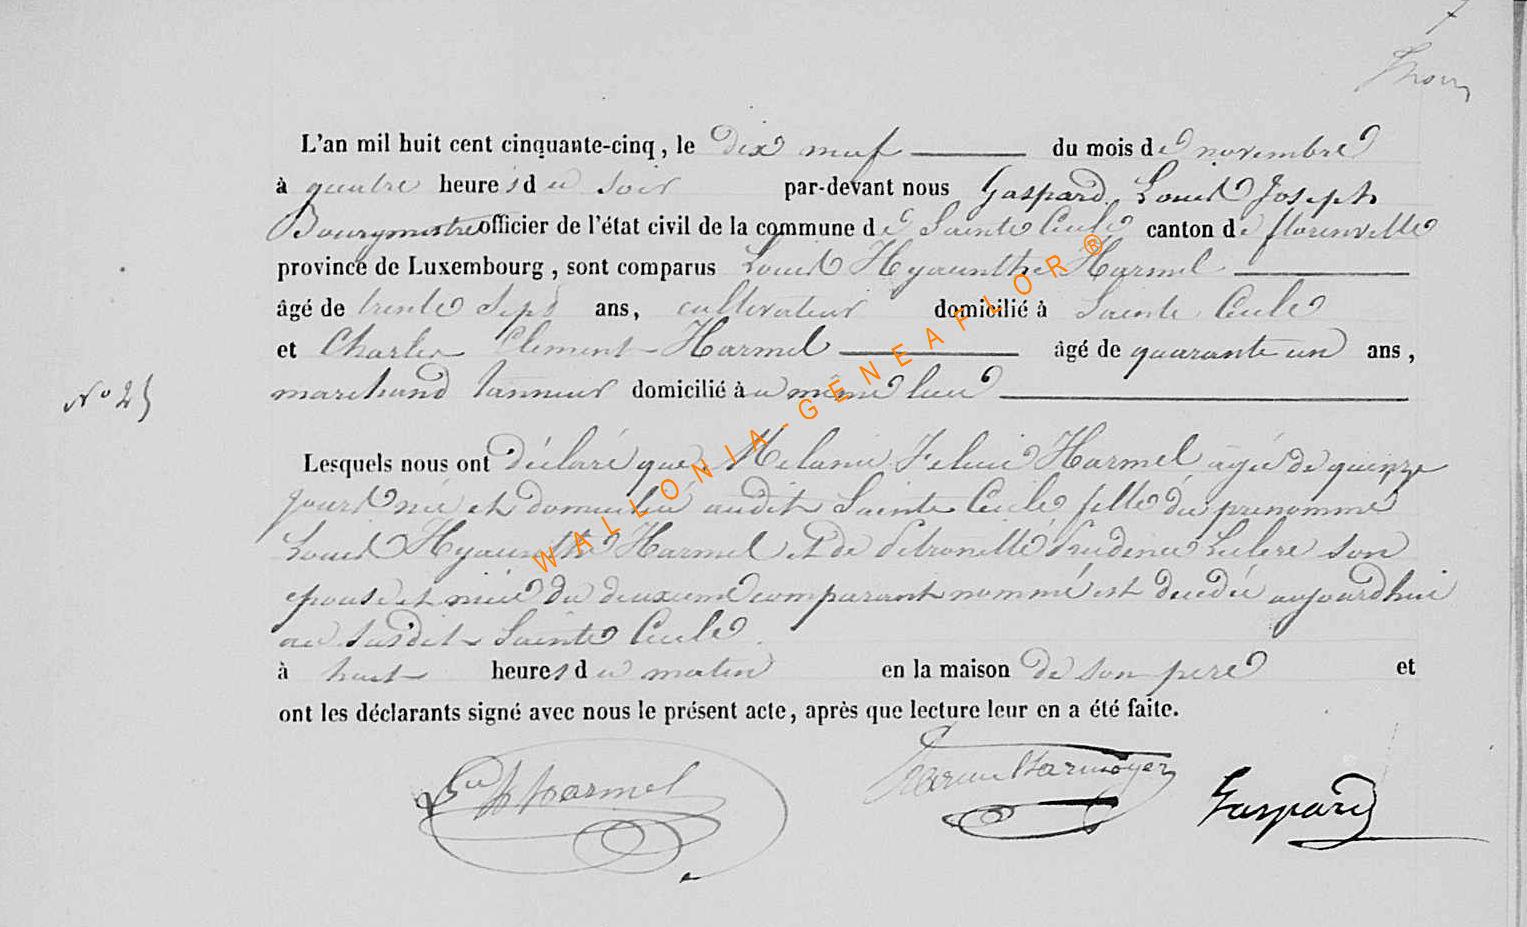 L'an mil huit cent cinquante-cinq, le dix neuf du mois de novembre
à quatre heures du soir par-devant nous Gaspard Louis Joseph
Bourgmestre officier de l'état civil de la commune de Sainte Cecile canton de florenville
province de Luxembourg, sont comparus Louis Hyacinthe Harmel
âgé de trente sept ans, cultivateur domicilié à Sainte Cecile
et Charles Clement Harmel âgé de quarante un ans,
marchand tanneur domicilié au même lieu
N° 25
Lesquels nous ont déclaré que Melanie Felicie Harmel agée de quinze
jours née et domiciliée audit Sainte Cecile fille du prenommé
Louis Hyacinthe Harmel et de Petronille Prudence Leclere son
epouse et niéce du deuxieme comparant nommé est decedée aujourdhui
au susdit Sainte Cecile
à huit heures du matin en la maison de son pere et
ont les déclarants signé avec nous le présent acte, après que lecture leur en a été faite.
Harmel
Gaspard
WALLONIA-GENEAFLOR®